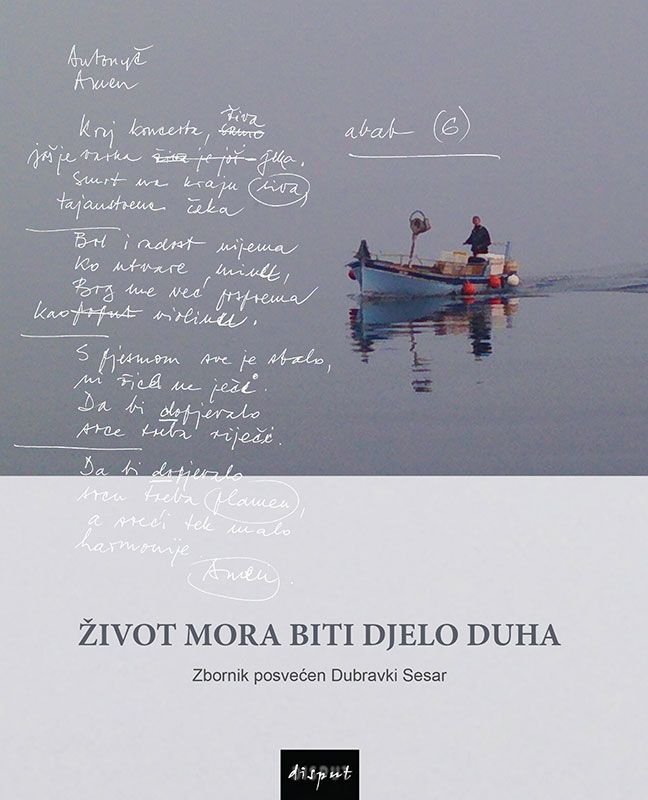 Antonyč
Amen
živa
Kraj koncerta,
abab (6)
još je varka je još jeka.
Smrt na kraju siva,
tajanstvena čeka
Bol i radost nijema
ko utvare
Bog me već posprema
kao poput violinu.
S pjesmom sve je stalo,
ni ne ječi.
Da bi dopjevalo
srce treba riječi.
Da bi dopjevalo
srcu treba plamen,
a sreći tek malo
harmonije.
Amen.
ŽIVOT MORA BITI DJELO DUHA
Zbornik posvećen Dubravki Sesar
disput